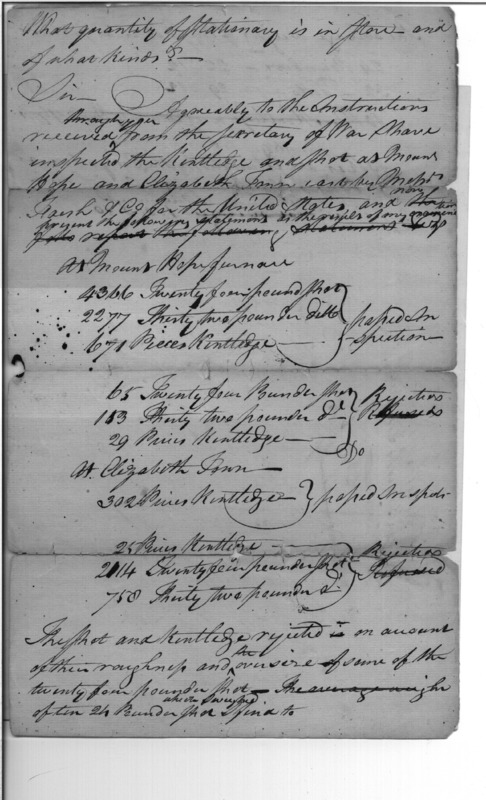 What quantity of Stationary is in Store and
of what kinds?
Sir Agreeably to the Instructions
through you
received from the Secretary of War I have
inspected the Kentledge and Shot at Mount
Hope and Elizabeth Town cast by Messrs
& Co for the United States, and now
present the following statement as the result of my
report the following Statement
At Mount Hope furnace
4366 Twenty four pound shot
2277 Thirty two pounder ditto
671 Pieces Kentledge
passed In
spection
65 Twenty four Pounder shot
113 Thirty two pounder do
29 Pieces Kentledge
Rejected
Refused
Do
At Elizabeth Town
302 Pieces Kentledge passed Inspec
25 Pieces Kentledge
2014 Twenty four pounder Shot
758 Thirty two pounder do
Rejected
Refused
The Shot and Kentledge rejected is on account
of their roughness and oversize of some of the
twenty four pounder Shot The average weight
of ten 24 Pounder Shot I find to